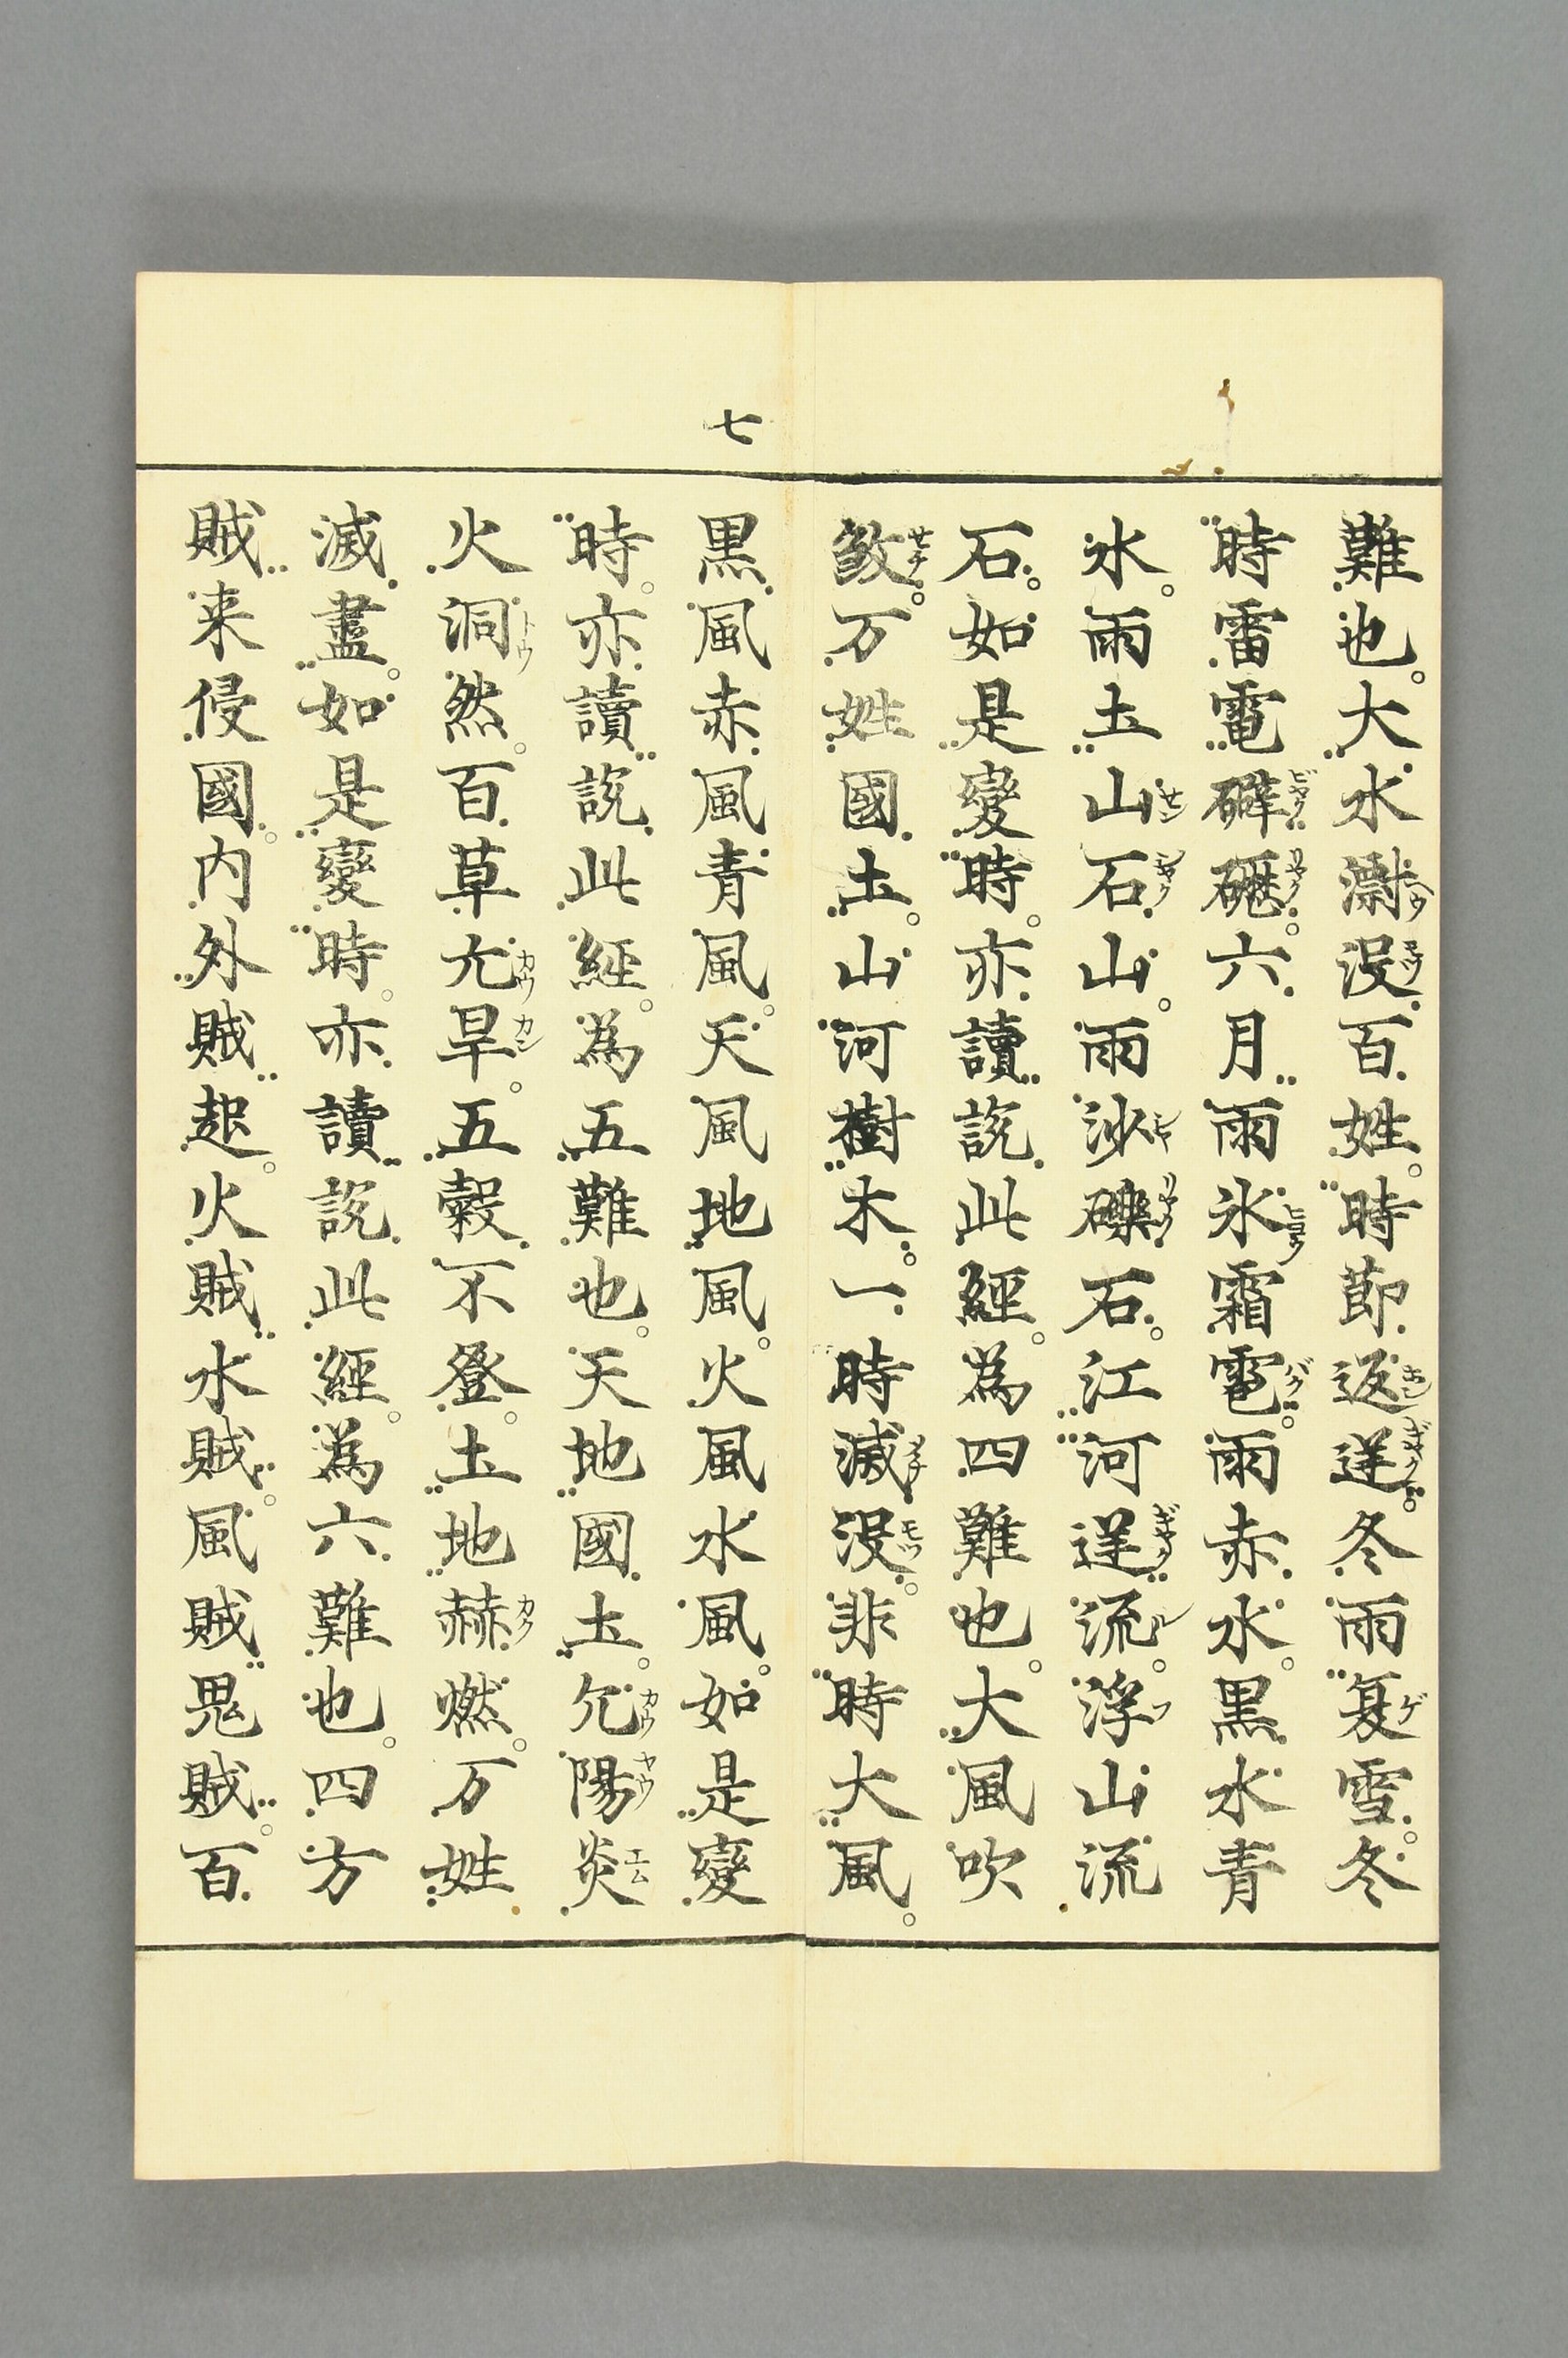 難也。大水漂没百姓。時節返逆。冬雨夏雪。冬
時雷電礔礰。六月雨氷霜雹。雨赤水。黒水青
水。雨土山石山。雨沙礫石。江河逆流。浮山流
石。如是變時。亦讀説此經。為四難也。大風吹
煞。万姓國土。山河樹木。一時滅没。非時大風。
七
黒風赤風青風。天風地風。火風水風。如是變
時。亦讀説此經。為五難也。天地國土。亢陽炎
火洞然。百草亢旱。五穀不登。土地赫燃。万姓
滅盡。如是變時。亦讀説此經。為六難也。四方
賊来侵國。内外賊起。火賊水賊。風賊鬼賊。百